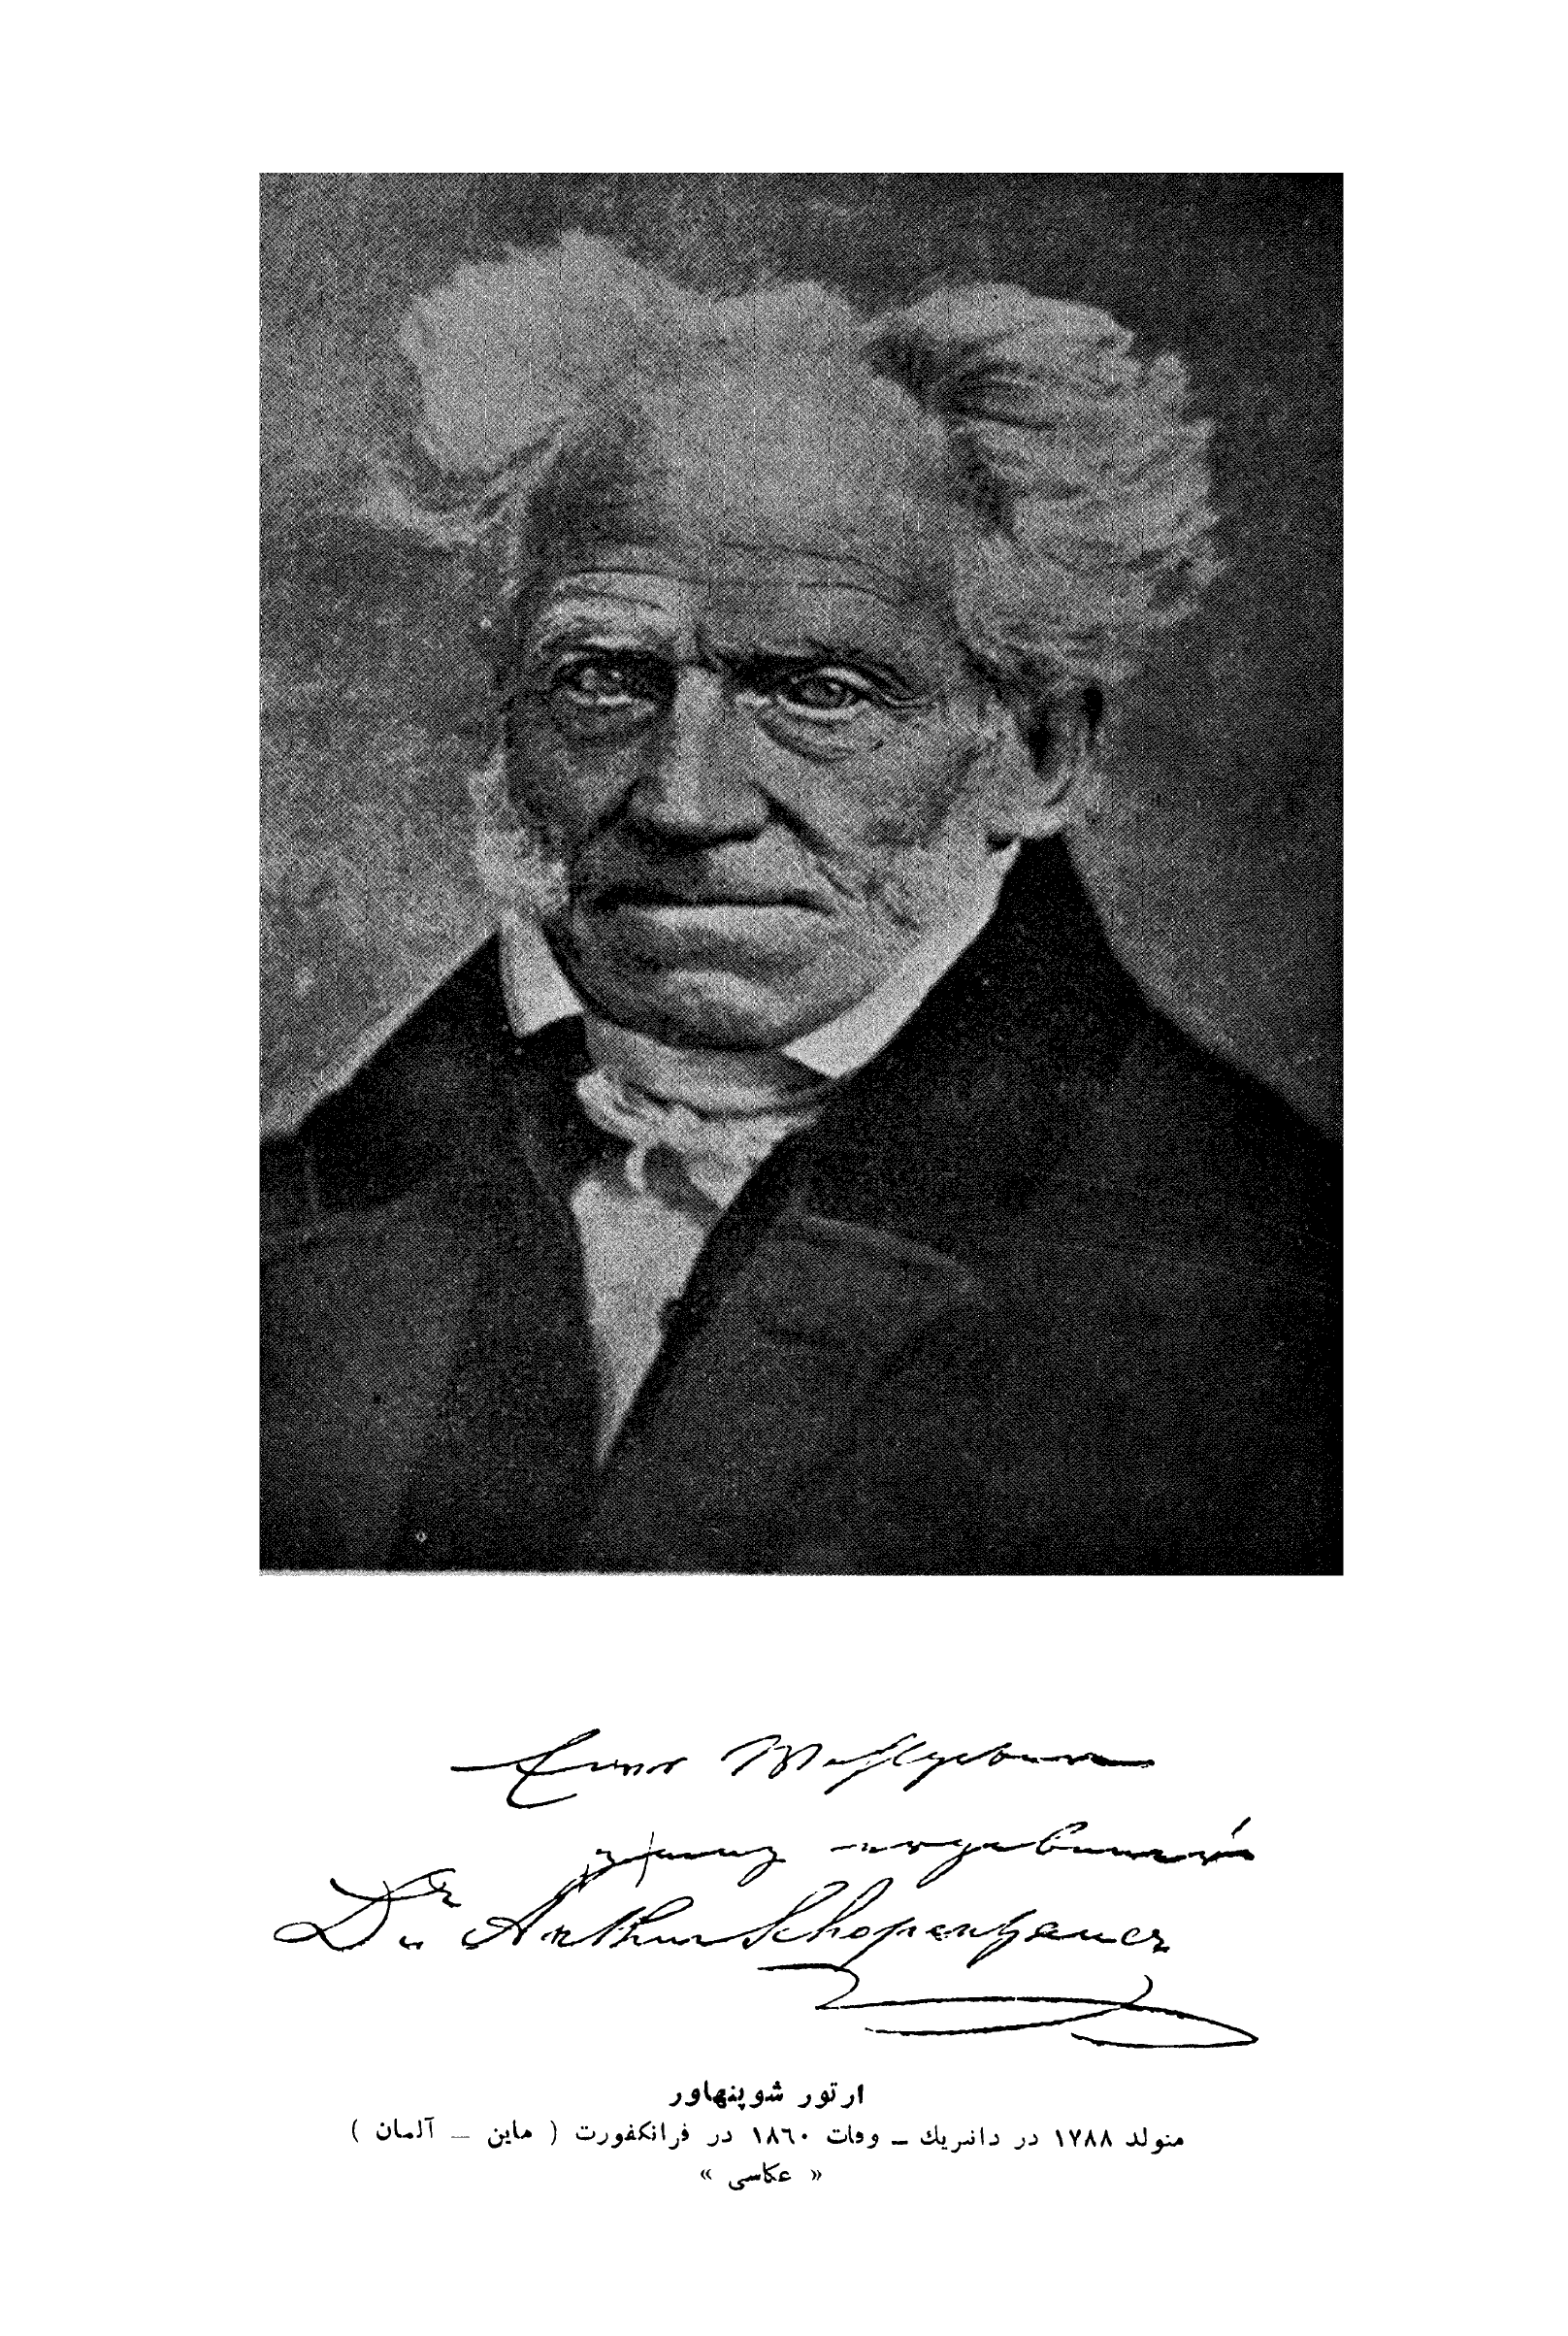 Dr. Arthur Schopenhauer
ارتور شوپنهاور
متولد ١٧٨٨ در دانزیك ــ وفات ١٨٦٠ در فرانکفورت ( ماین ــ آلمان )
« عکاسی »